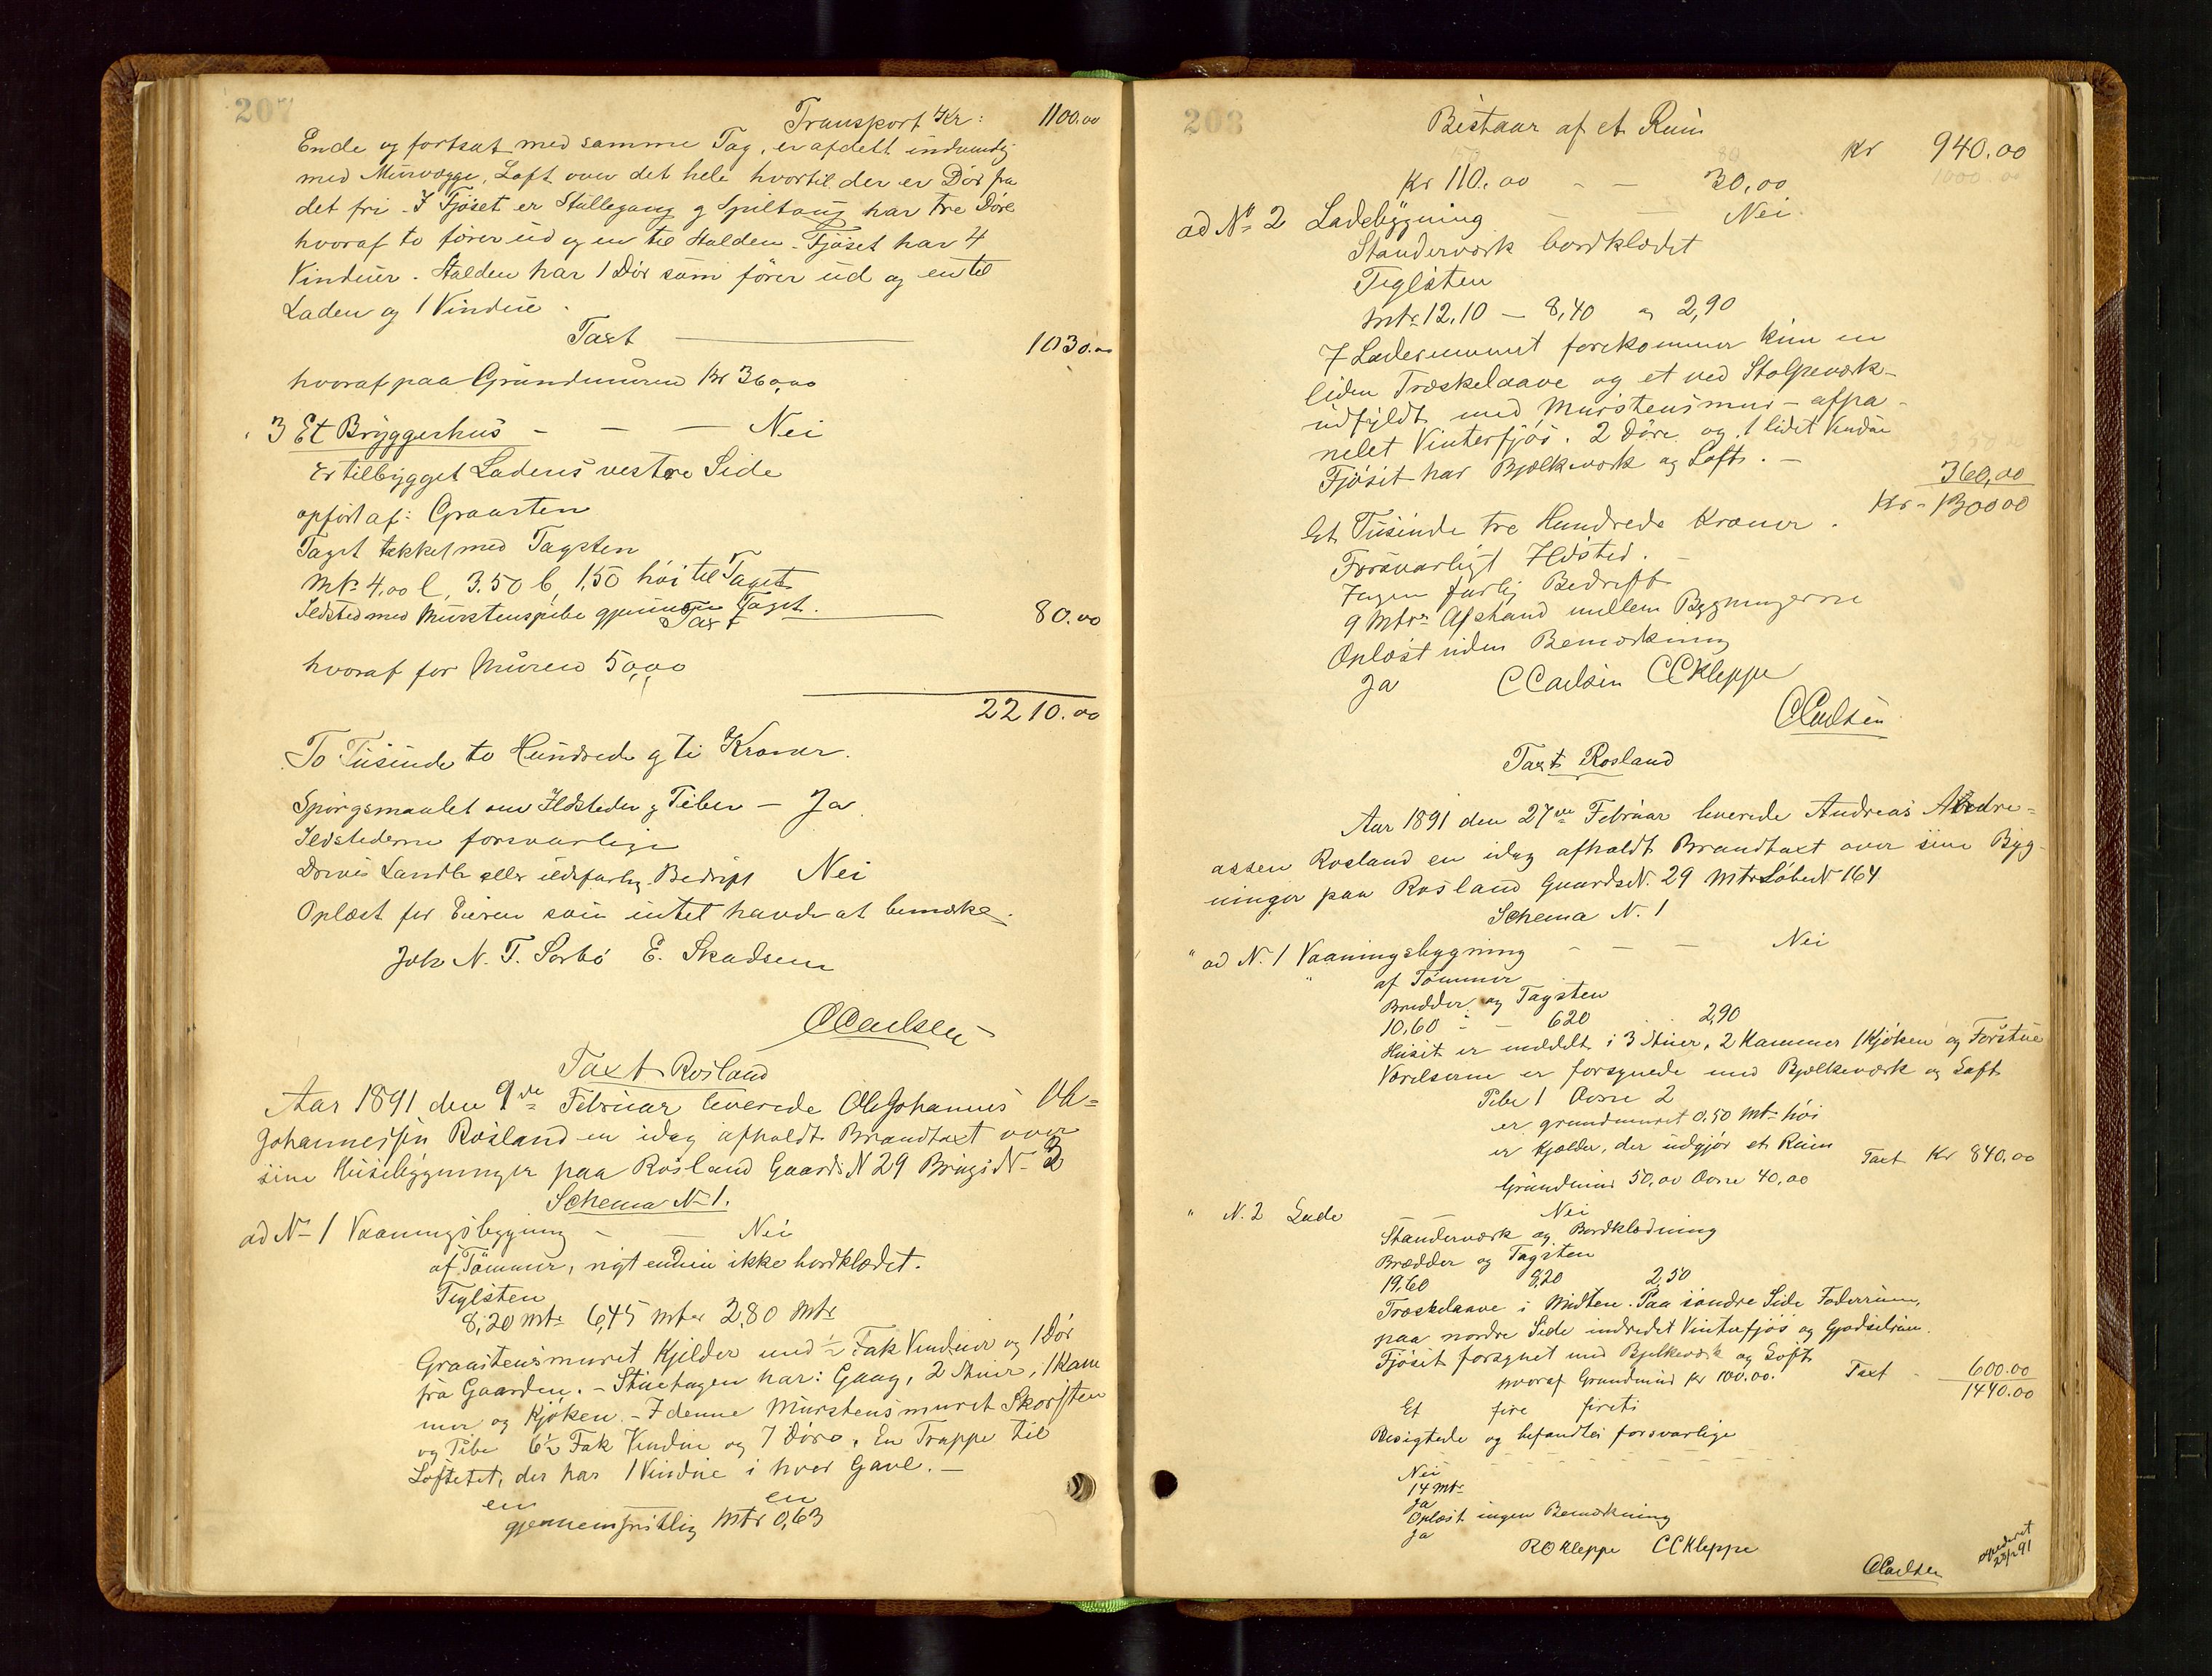 207
Transport Kr: 1100.00
Ende og fortsat med samme Tag, er afdelt indvendig
med Murvægge, Loft over det hele hvortil der er Dør fra
det fri. I Fjøset er Stillegang og har tre Døre
hvoraf to fører ud og en til Stalden. Fjøset har 4
Vinduer. Stalden har 1 Dør som fører ud og en til
Laden og 1 Vindue.
Taxt 1030.00
hvoraf paa Grundmuren Kr 360,00
3 Et Bryggerhus - - - Nei
Er tilbygget Ladens vestre Side
opført af: Graasten
Taget tækket med Tagsten
Mtr 4,00 l, 3.50 b, 1,50 høi til Taget
Ildsted med Murstenspibe gjennem Taget.
Taxt 80.00
hvoraf for Muren 50,00
2210.00
To Tusinde to Hundrede og ti Kroner.
Spørgsmaalet om Ildsteder og Piber - Ja
Ildstederne forsvarlige
Drives Landh eller ildsfarlig Bedrift Nei
Oplæst for Eieren som intet havde at bemærke.
Joh N. T. Sørbø E. Skadsem
CCarlsen
Taxt Rosland
Aar 1891 den 9de Februar leverede Ole Johannes Ol=
Johannessen Rosland en idag afholdt Brandtaxt over
sine Husebygninger paa Rosland Gaards N 29 Brugs N- 3
Schema N- 1.
ad N- 1 Vaaningsbygning - - Nei
af Tømmer, nyt endnu ikke bordklædet.
Teglsten
8,20 Mtr 6,45 Mtr 2,80 Mtr
Graastensmuret Kjelder med ½ Fak Vinduer og 1 Dør
fra Gaarden. - Stuetagen har: Gang, 2 Stuer, 1 Kam
mer og Kjøken. - I denne Murstensmuret Skorsten
og Pibe 6½ Fak Vindue og 7 Døre. En Trappe til
Loftetet, der har 1 Vindue i hver Gavl. -
en en
gjennemsnitlig Mtr 0,63
208
Bestaar af et Rum
Kr 940.00
Kr 110.00 - - 30,00
ad No 2 Ladebygning - - Nei.
Standerværk bordklædet
Teglsten
Mtr 12,10 - 8,40 og 2,90
I Laderummet forekommer kun en
liden Træskelaave og et ved Stolpeværk-
udfyldt med Murstensmur - afpa-
nelet Vinterfjøs. 2 Døre og 1 lidet Vindue
Fjøset har Bjælkeværk og Loft. - 360,00
Et Tusinde tre Hundrede Kroner. Kr - 1300 00
Forsvarligt Ildsted.
Ingen farlig Bedrift
9 Mtrs Afstand mellem Bygningerne
Oplæst uden Bemærkning
Ja CCarlsen CCKleppe
CCarlsen
Taxt Rosland
Aar 1891 den 27de Februar leverede Andreas Andre=
assen Rosland en idag afholdt Brandtaxt over sine Byg-
ninger paa Rosland Gaards N. 29 Mtr Løbe N 164
Schema N. 1
" ad N. 1 Vaaningsbygning - - - Nei
af Tømmer
Brædder og Tagsten
10,60 - - 620 2,90
Huset er inddelt i 3 Stuer, 2 Kammer 1 Kjøken og Forstue
Værelserne er forsynede med Bjelkeværk og Loft
Pibe 1 Ovne 2
er grundmuret 0,50 Mtr høi
er Kjelder, der udgjør et Rum
Taxt Kr 840,00
Grundmur 50,00 Ovne 40,00
" N. 2 Lade Nei
Standerværk og Bordklædning
Brædder og Tagsten
19,60 9,20 2,50
Træskelaave i Midten. Paa søndre Side Foderrum,
paa nordre Side indredet Vinterfjøs og Gjødselrum.
Fjøset forsynet med Bjelkeværk og Loft
hvoraf Grundmur Kr 100.00. Taxt - 600.00
1440.00
Et fire firti
Besigtede og befandtes forsvarlige
Nei
14 Mtr
Ja
Oplæst ingen Bemærkning
Ja
ROKleppe CCKleppe
CCarlsen